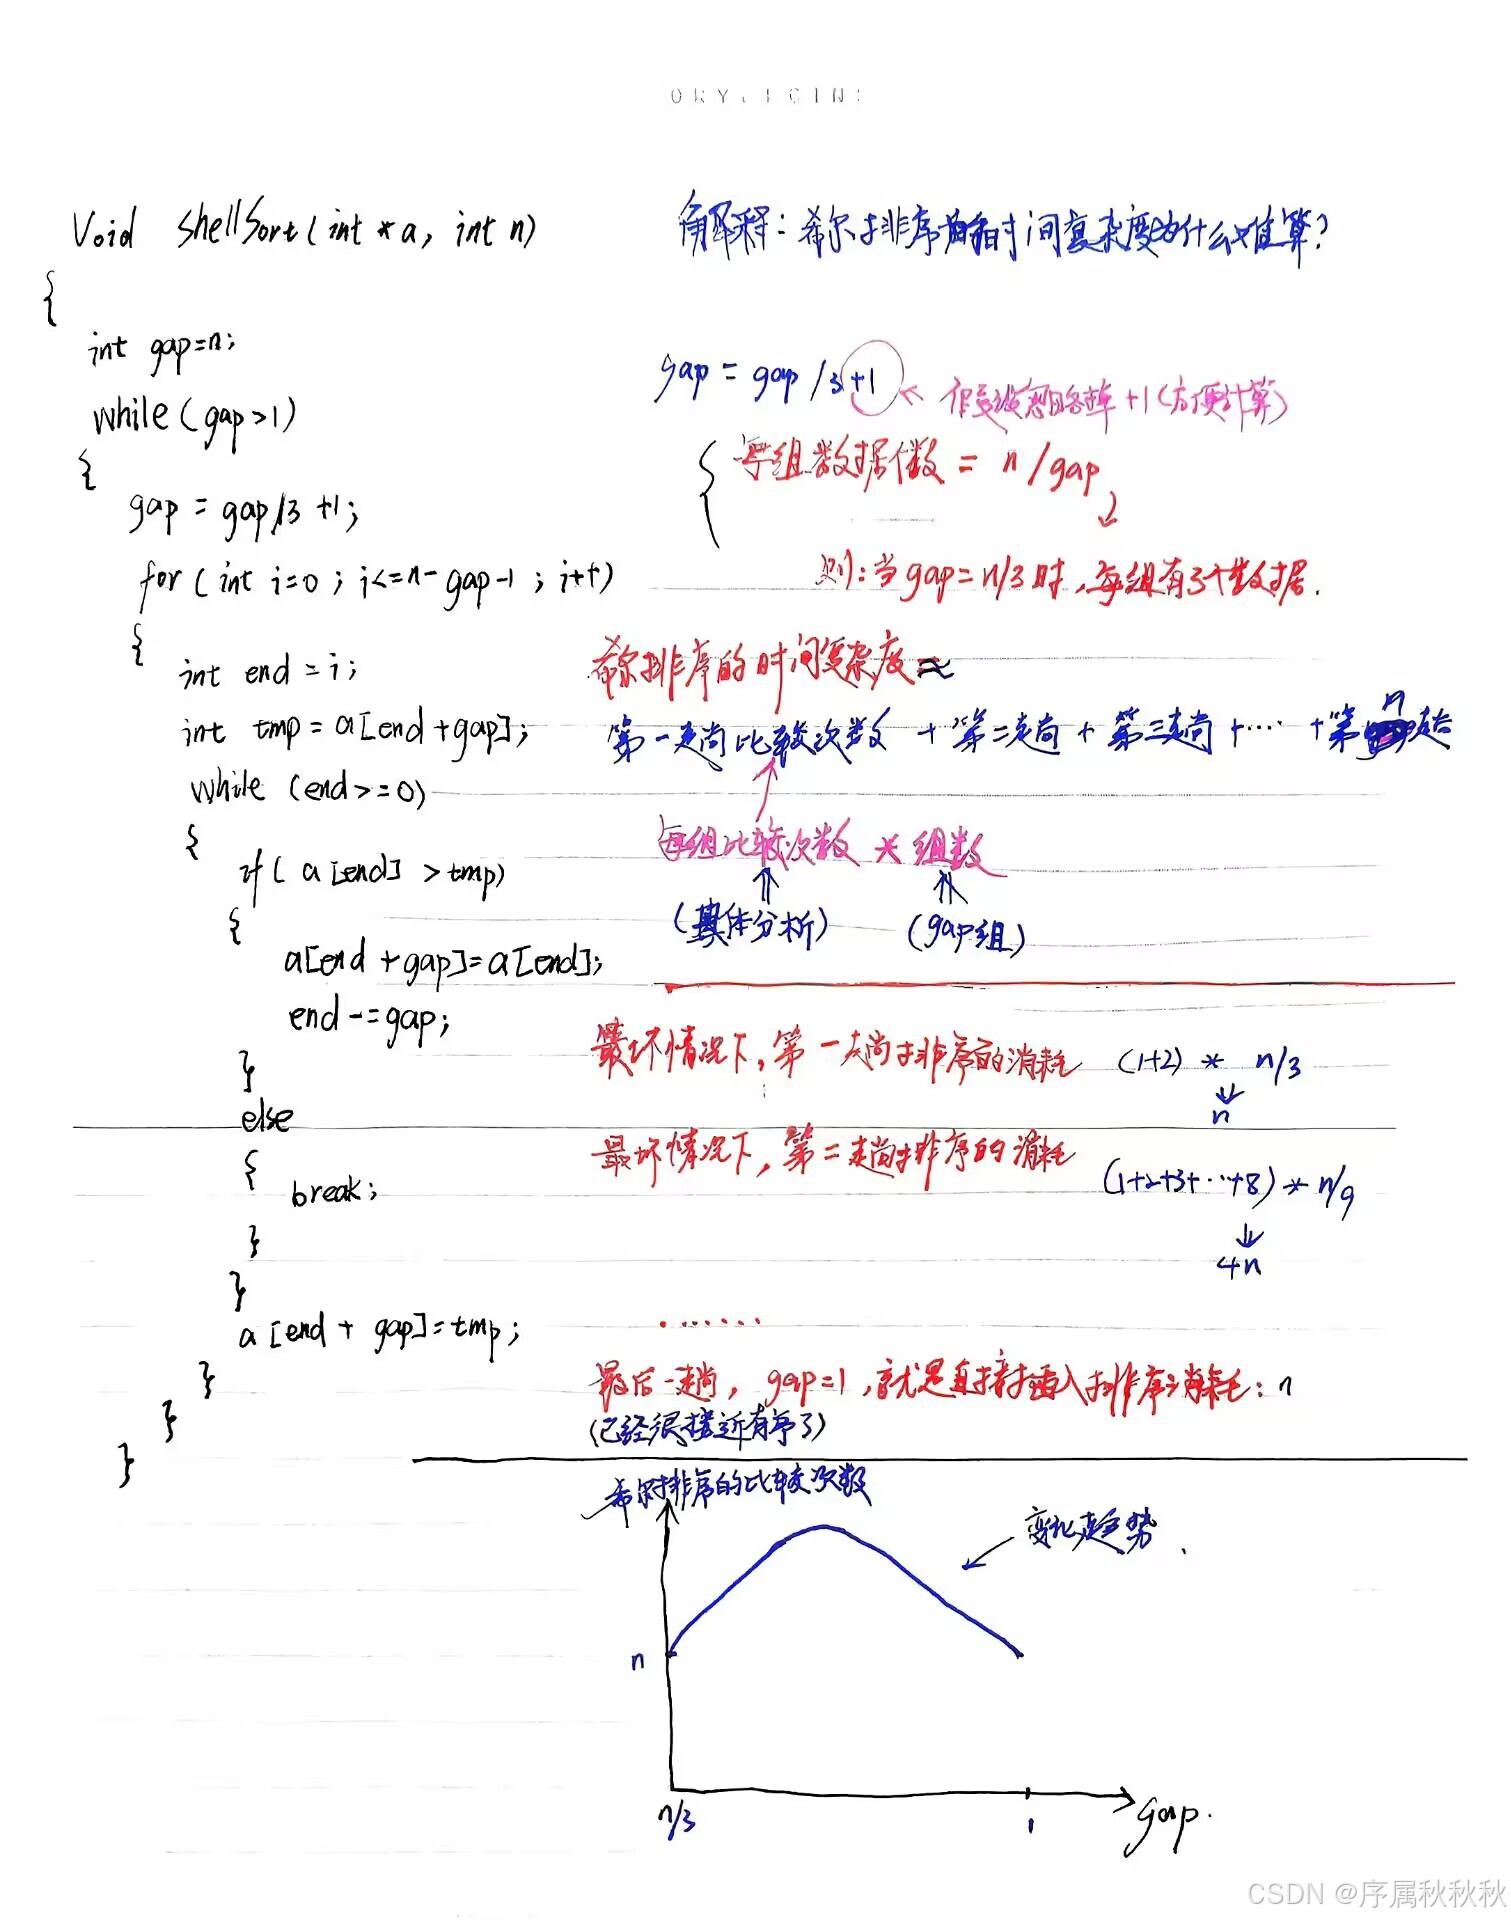 Void shellSort(int *a, int n)
{
int gap=n;
while(gap>1)
{
gap = gap/3 +1;
for(int i=0; i<=n-gap-1; i++)
{
int end = i;
int tmp = a[end+gap];
while (end>=0)
{
if( a[end] > tmp)
{
a[end +gap]=a[end];
end -=gap;
}
else
{
break;
}
}
a[end + gap]=tmp;
}
}
}
解释:希尔排序的时间复杂度为什么难算?
gap = gap /3 +1
假设忽略掉+1(方便计算)
每组数据个数 = n/gap
则:当gap=n/3时,每组有3个数据.
希尔排序的时间复杂度≈
第一趟比较次数 + 第二趟 + 第三趟 + … + 第n趟
每组比较次数 * 组数
(具体分析) (gap组)
最坏情况下,第一趟排序的消耗 (1+2) * n/3
n
最坏情况下,第二趟排序的消耗
(1+2+3+…+8) * n/9
4n
……
最后一趟, gap=1, 就是直接插入排序消耗: n
(已经很接近有序了)
希尔排序的比较次数
变化趋势.
n
n/3
1
gap.
CSDN @序属秋秋秋